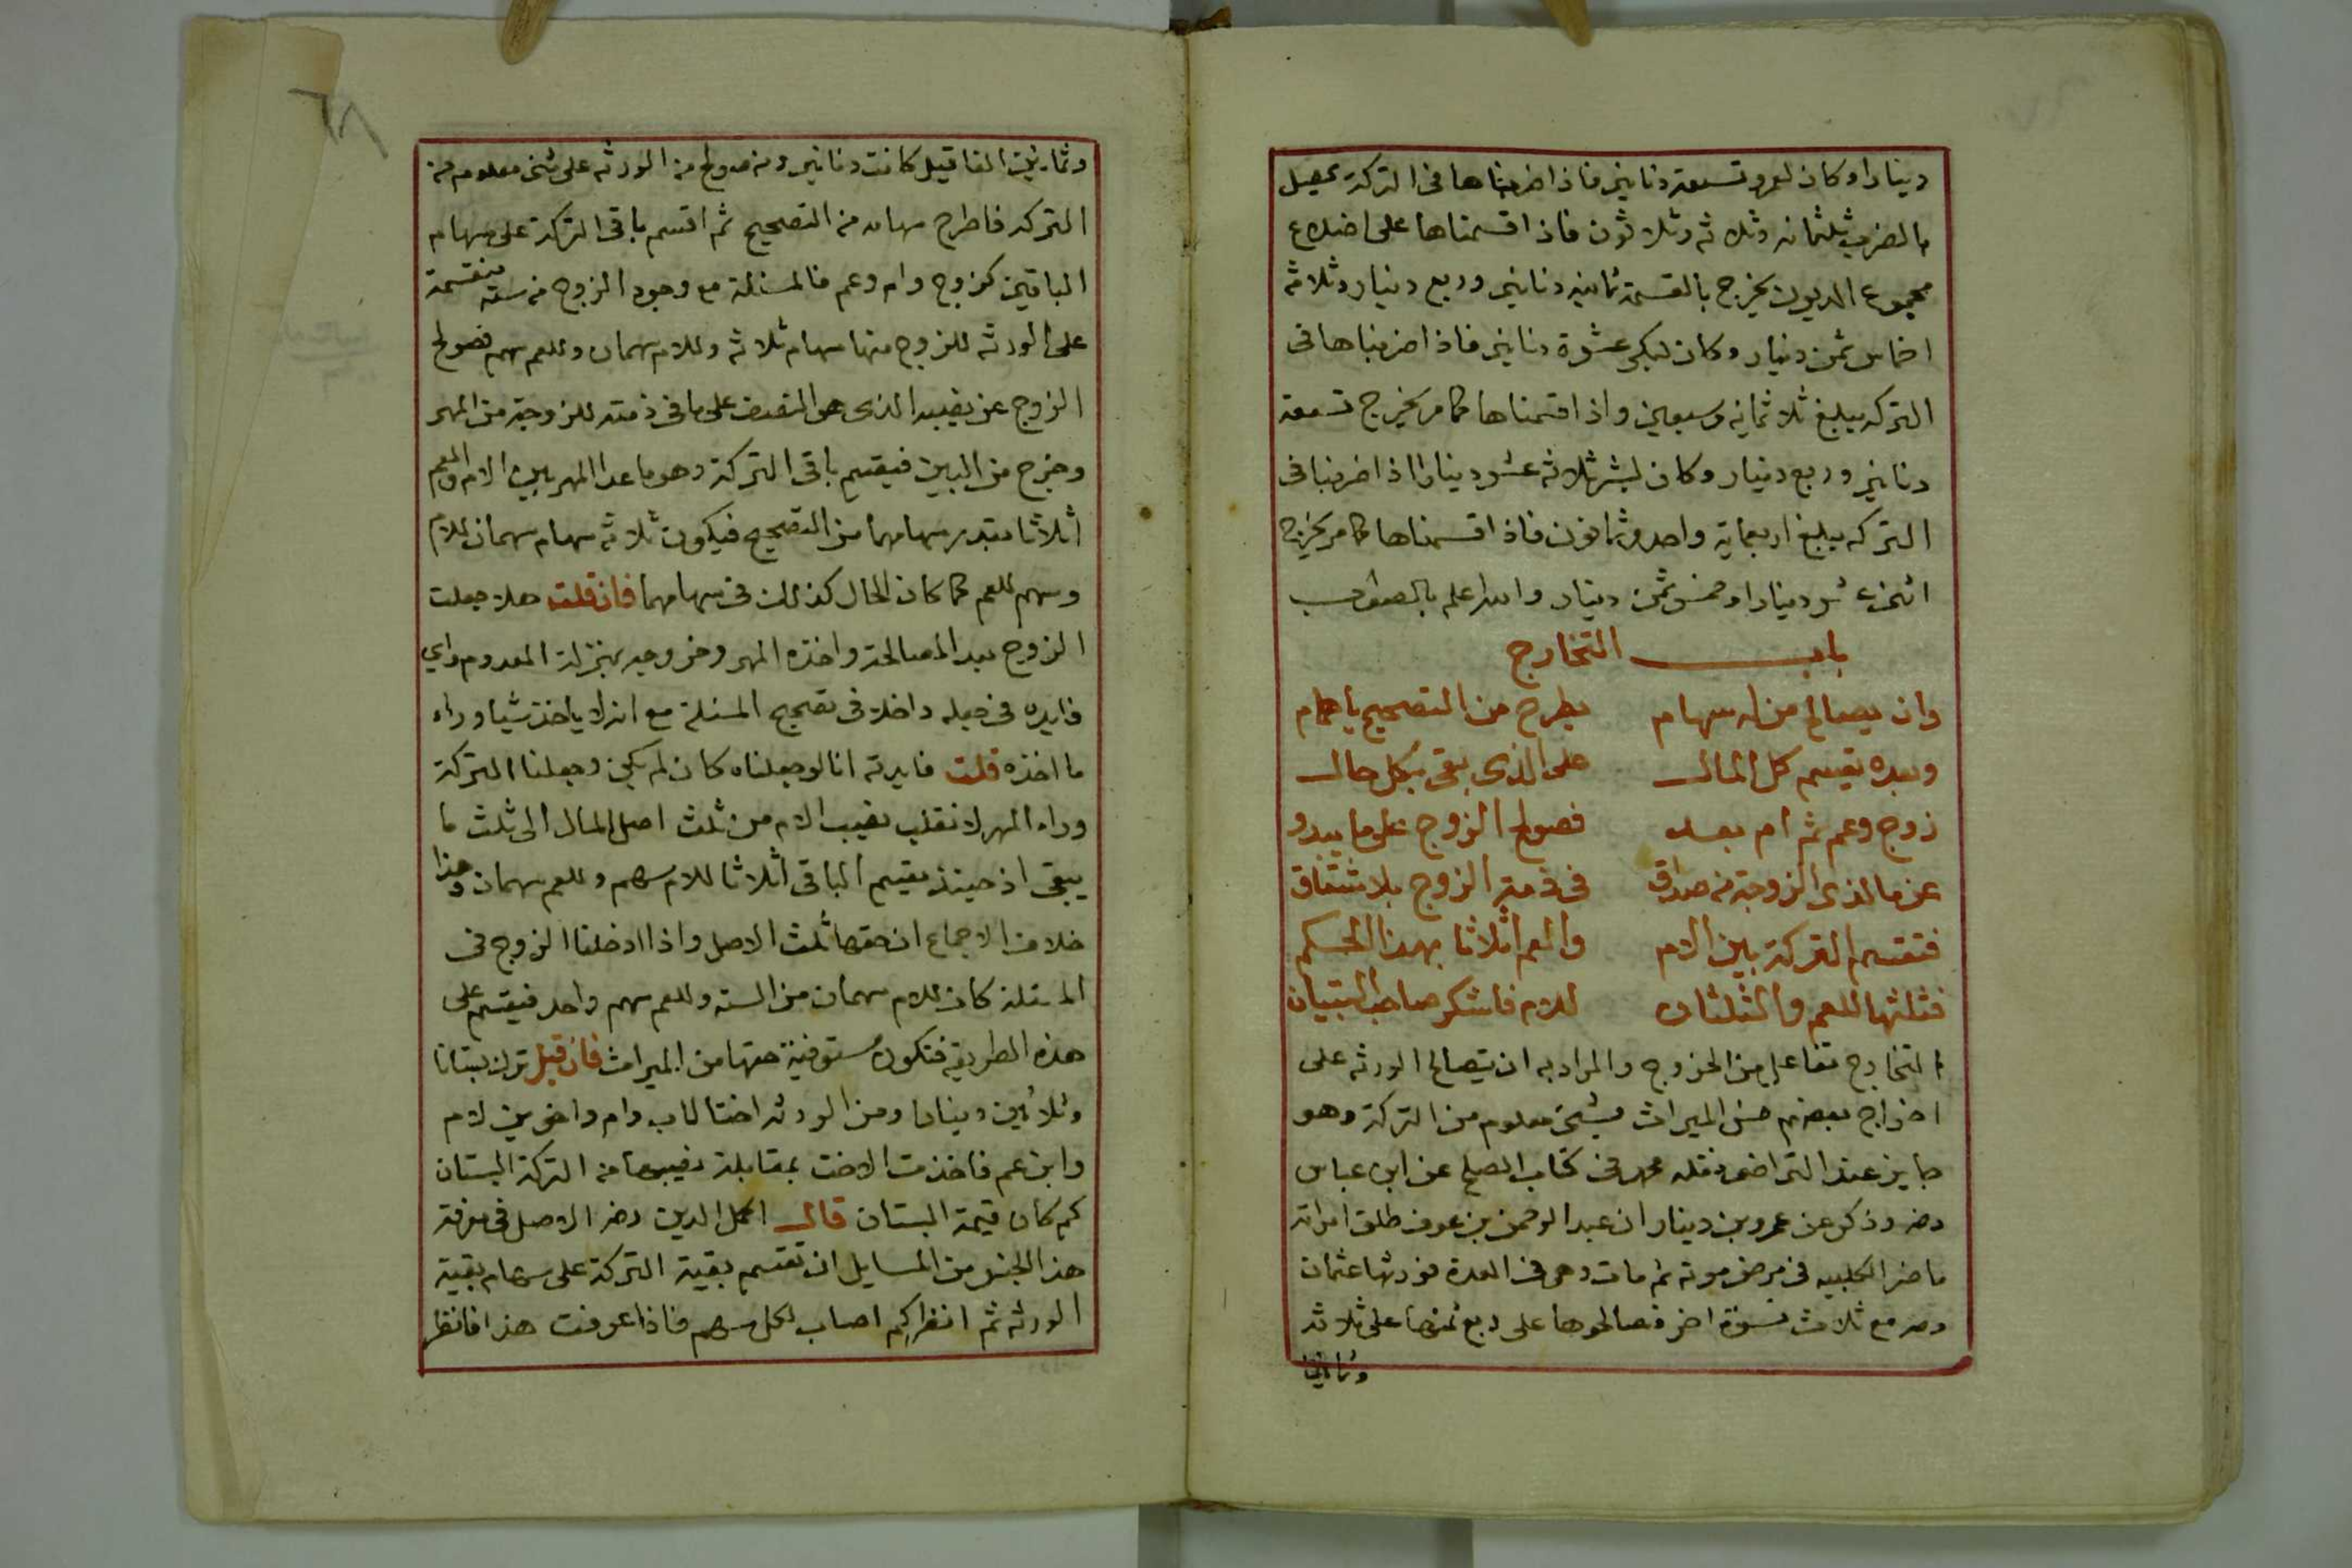 دينارا وكان لعمرو تسعة دنانير فاذا ضربناها فى التركة يحصل
بالضرب ثلثمائه وثلاثه وثلاثون فاذا قسمناها على اضلاع
مجموع الديون يخرج بالقسمة ثمانيه دنانير وربع دينار وثلاثة
اخماس ثمن دينار وكان لبكر عشرة دنانير فاذا ضربناها فى
التركه يبلغ ثلاثمايه وسبعين واذا قسمناها كما مر يخرج تسعة
دنانير وربع دينار وكان لبشر ثلاثه عشر دينارا اذا ضربنا فى
التركه يبلغ اربعماية واحد وثمانون فاذا قسمناها كما مر يخرج
اثنى عشر دينارا وخمس ثمن دينار والله اعلم بالصواب
باب التخارج
وان يصالح من له سهام يطرح من التصحيح يا همام
وبعده يقسم كل المال على الذى بقى بكل حال
زوج وعم ثم ام بعد فصولح الزوج على ما يبدو
عن ما لذى الزوجة من صداق فى ذمة الزوج بلا شقاق
فتقسم التركة بين الام والعم اثلاثا بهذا الحكم
فثلثها للعم والثلثان للام فاشكر صاحب التبيان
التخارج تفاعل من الخروج والمراد به ان يتصالح الورثه على
اخراج بعضهم من الميراث بشئ معلوم من التركة وهو
جايز عند التراضى نقله محمد فى كتاب الصلح عن ابن عباس
رضه وذكر عن عمرو بن دينار ان عبد الرحمن بن عوف طلق امراته
تماضر الكلبيه فى مرض موته ثم مات وهى فى العدة فورثها عثمان
رضه مع ثلاث نسوة اخر فصالحوها على ربع ثمنها على ثلاثه
وثمانين
٦٨
وثمانين الفا قيل كانت دنانير ومن صولح من الورثه على شئ معلوم من
التركه فاطرح سهامه من التصحيح ثم اقسم باقى التركة على سهام
الباقين كزوج وام وعم فالمسئلة مع وجود الزوج من سته منقسمة
على الورثه للزوج منها سهام ثلاثه وللام سهمان وللعم سهم فصولح
الزوج عن نصيبه الذى هو النصف على ما فى ذمته للزوجة من المهر
وخرج من البين فيقسم باقى التركة وهو ما عدا المهر بين الام والعم
اثلاثا بقدر سهامهما من التصحيح فيكون ثلاثه سهام سهمان للام
وسهم للعم كما كان الحال كذلك فى سهامهما فان قلت هلا جعلت
الزوج بعد المصالحة واخذه المهر وخروجه بمنزلة المعدوم واى
فايده فى جعله داخلا فى تصحيح المسئلة مع انه لا ياخذ شيا وراء
ما اخذه قلت فايدته انا لو جعلناه كان لم يكن وجعلنا التركة
وراء المهر لانقلب نصيب الام من ثلث اصل المال الى ثلث ما
يبقى اذ حينئذ يقسم الباقى اثلاثا للام سهم وللعم سهمان وهذا
خلاف الاجماع ان حقها ثلث الاصل واذا ادخلنا الزوج فى
المسئلة كان للام سهمان من السته وللعم سهم واحد فيقسم على
هذه الطريقة فتكون مستوفية حقها من الميراث فان قيل ترك بستانا
وثلاثين دينارا ومن الورثه اختا لاب وام واخوين لام
وابن عم فاخذت الاخت بمقابلة نصيبها من التركة البستان
كم كان قيمة البستان قال اكمل الدين رضه الاصل فى معرفة
هذا الجنس من المسايل ان تقسم بقية التركة على سهام بقية
الورثه ثم انظر كم اصاب لكل سهم فاذا عرفت هذا فانظر